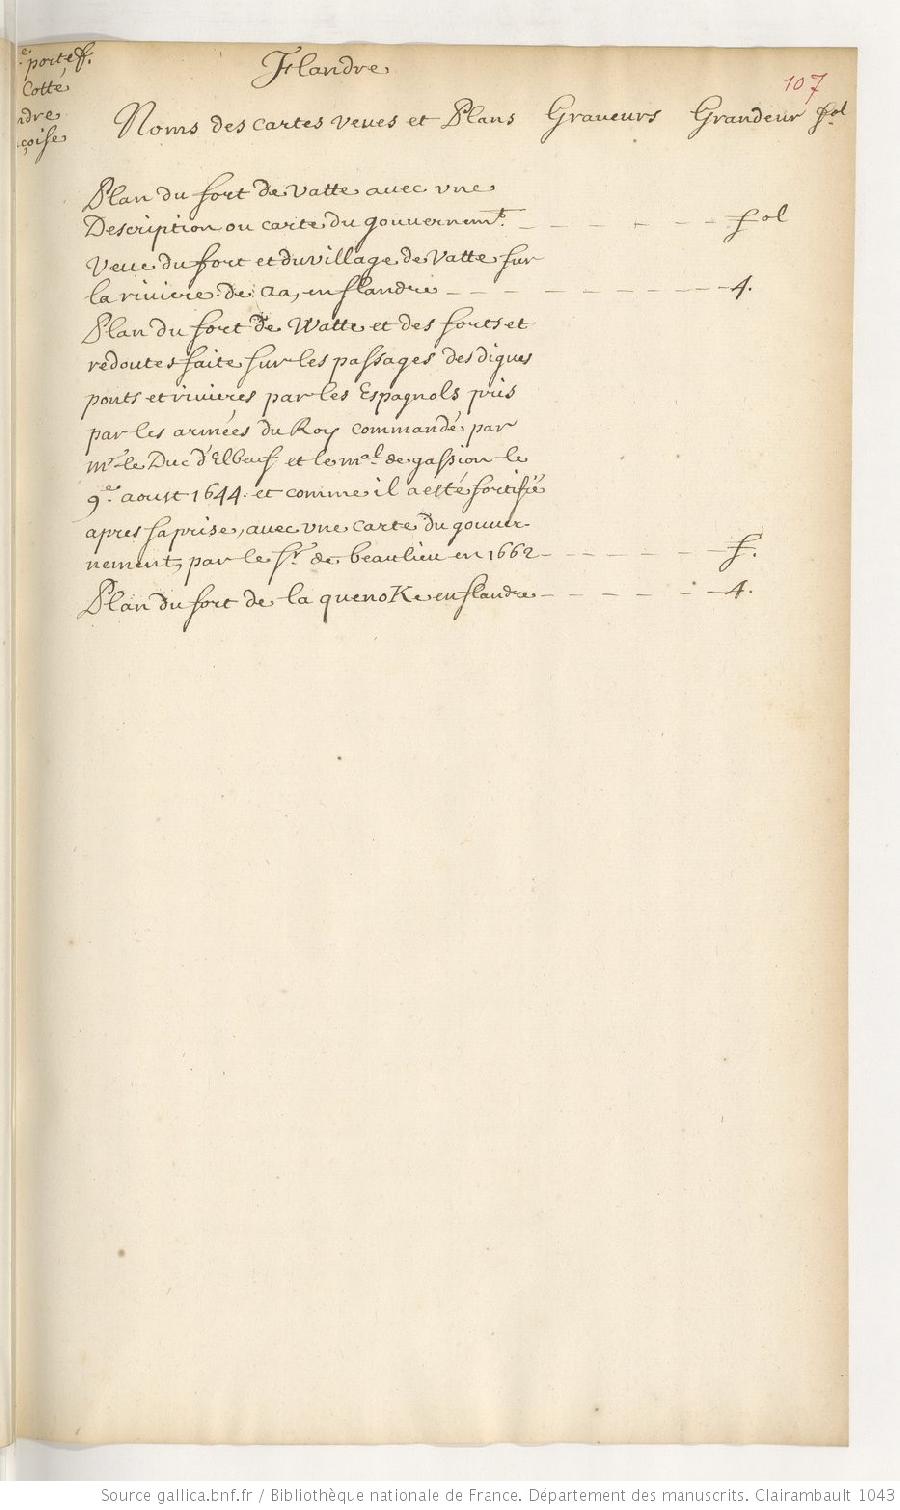 e. portef.
Cotté
ndre
çoise
Flandre
107
Noms des cartes veues et Plans Graueurs Grandeur fol
Plan du fort de Vatte auec vne
Description ou carte du gouuernemt. fol
Veue du fort et du village de Vatte sur
la riuiere de aa, en flandre 4.
Plan du fort de Watte et des forts et
redoutes faite sur les passages des digues
ponts et riuieres par les Espagnols pris
par les armées du Roy commandé par
mr. le Duc d'Elbœuf et le mal. de gassion le
9e. aoust 1644. et comme il a esté fortifié
apres sa prise, auec vne carte du gouuer-
nement, par le Sr. de beaulieu en 1662 f.
Plan du fort de la quenoKe en flandre 4.
Source gallica.bnf.fr / Bibliothèque nationale de France. Département des manuscrits. Clairambault 1043